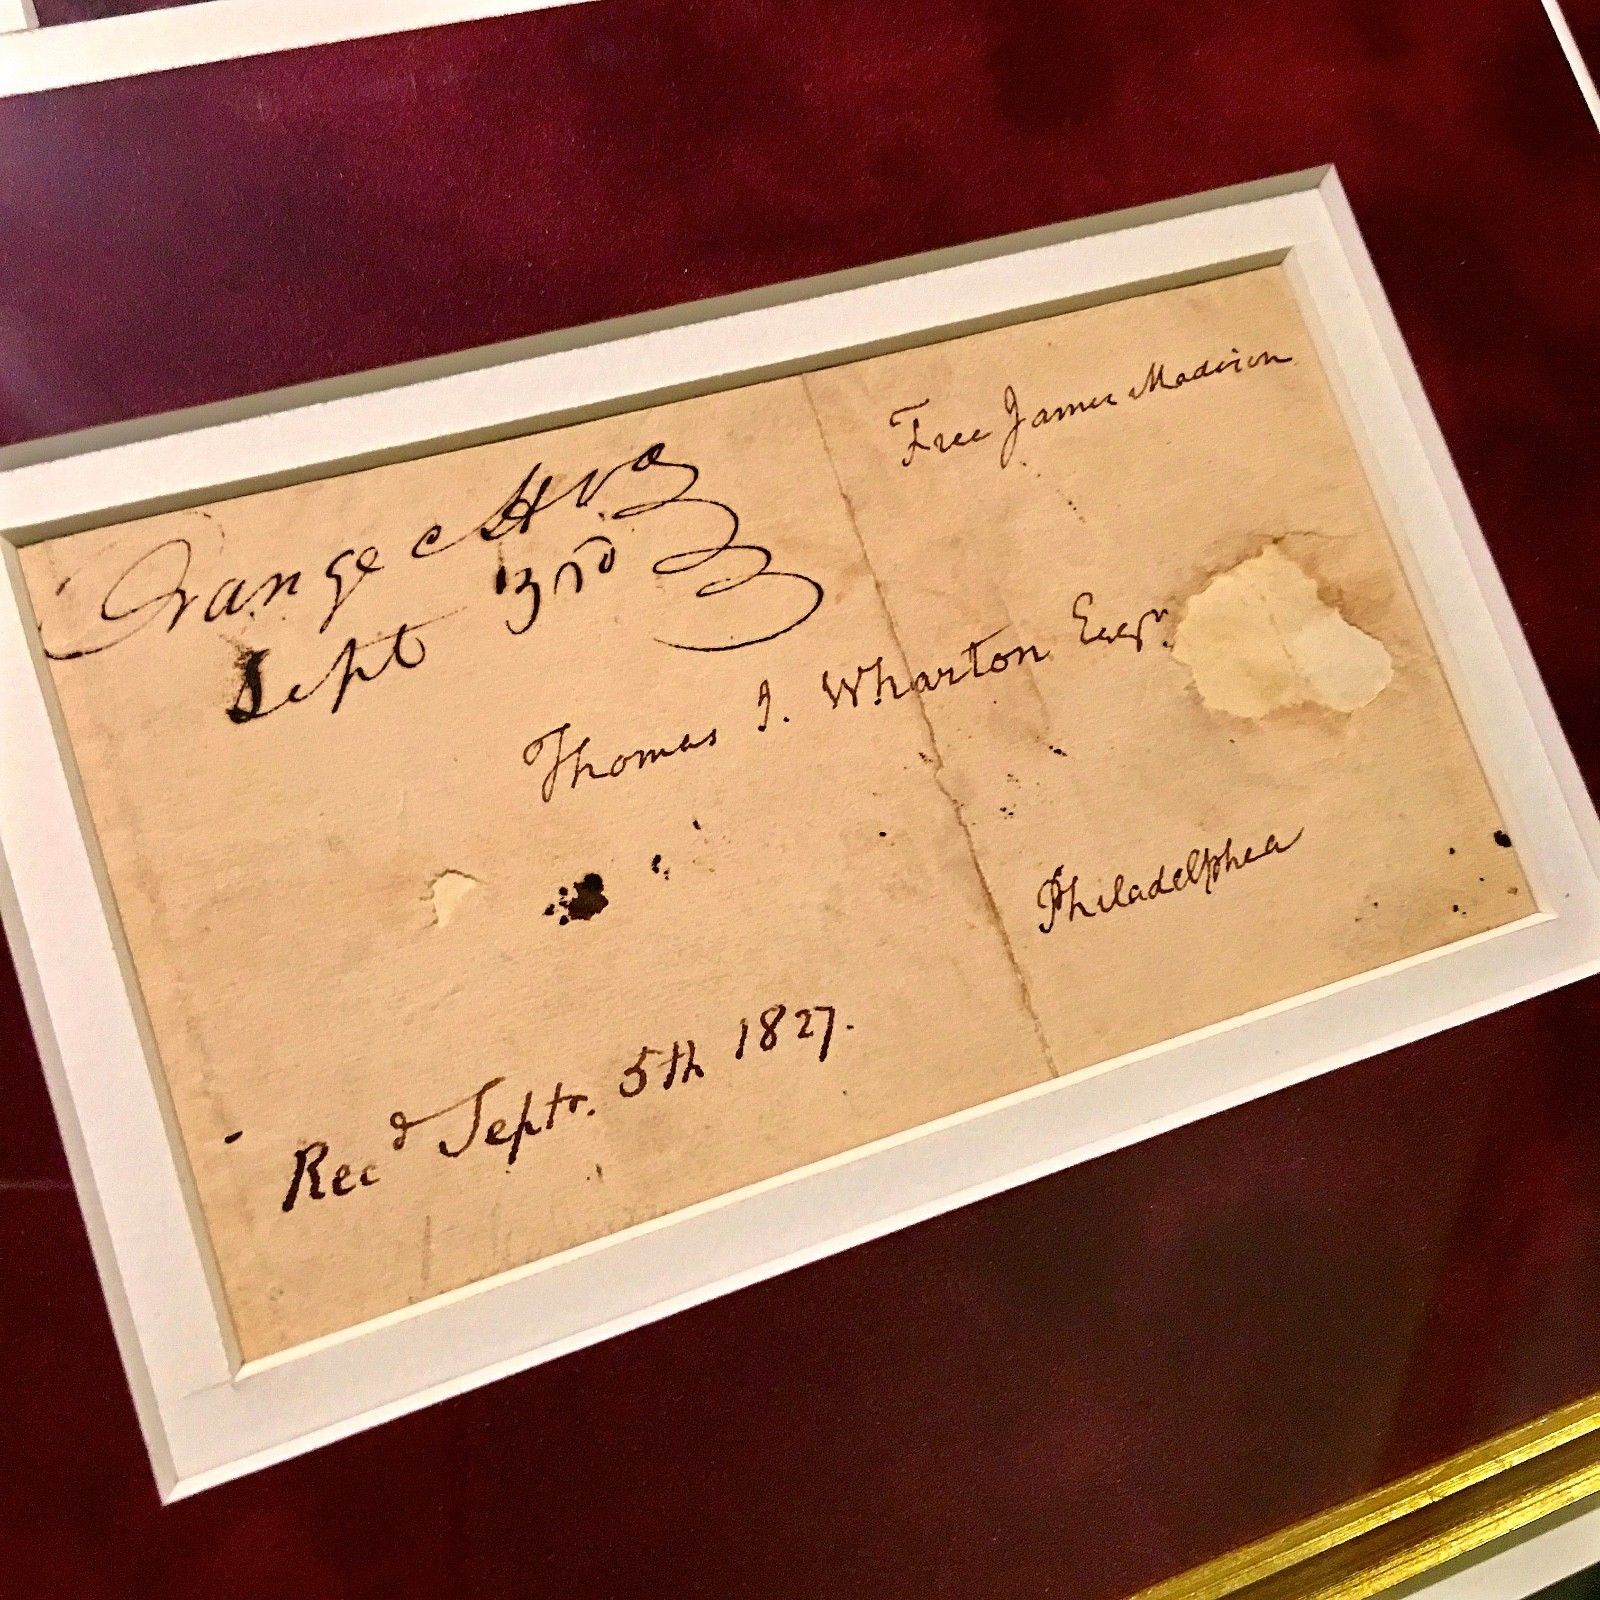 Free James Madison
Orange CH Va
Sept 3rd
Thomas I. Wharton Esqr.
Philadelphea
Recd Septr. 5th 1827.